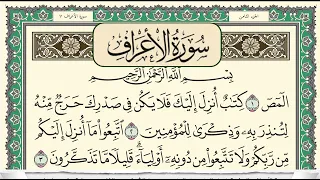 سورة الأعراف ٧
الجزء الثامن
سُورَةُ الأَعْرَافِ
بِسْمِ اللَّهِ الرَّحْمَٰنِ الرَّحِيمِ
الٓمٓصٓ ١ كِتَٰبٌ أُنزِلَ إِلَيْكَ فَلَا يَكُن فِى صَدْرِكَ حَرَجٌ مِّنْهُ
لِتُنذِرَ بِهِۦ وَذِكْرَىٰ لِلْمُؤْمِنِينَ ٢ ٱتَّبِعُوا۟ مَآ أُنزِلَ إِلَيْكُم
مِّن رَّبِّكُمْ وَلَا تَتَّبِعُوا۟ مِن دُونِهِۦٓ أَوْلِيَآءَ ۗ قَلِيلًا مَّا تَذَكَّرُونَ ٣